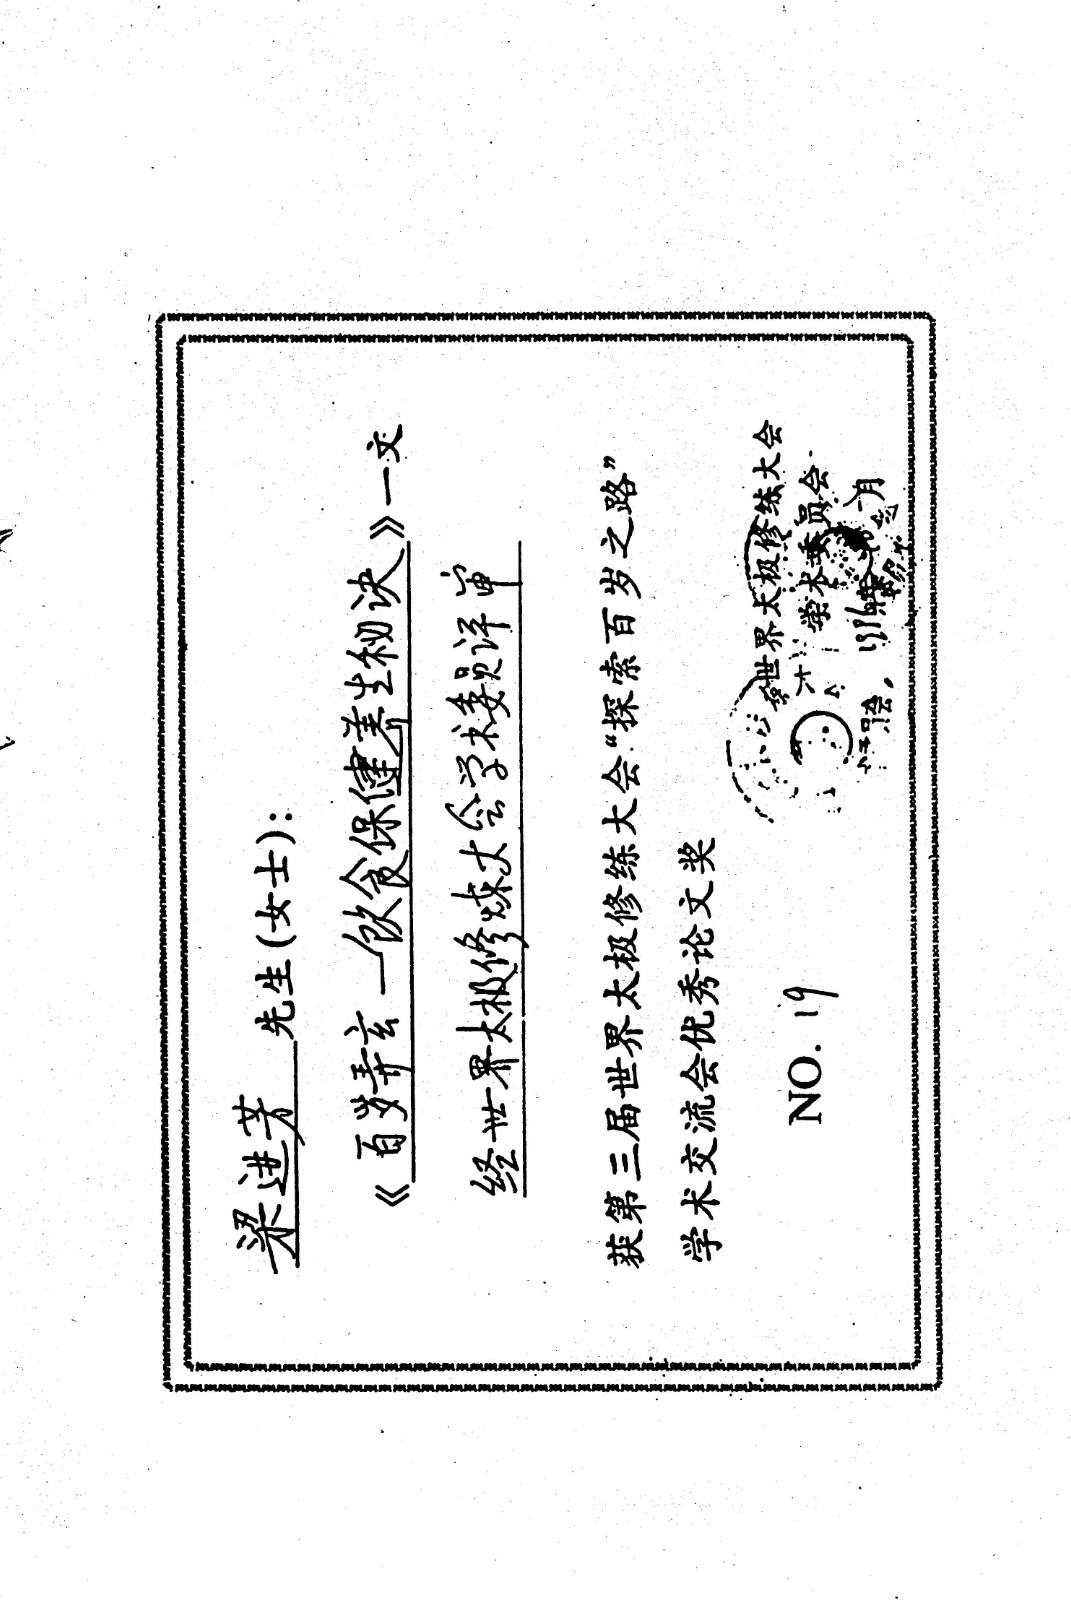 梁进芳 先生(女士):
《百岁弄玄一饮食保健养生秘诀》一文
经世界太极修炼大会学术委员评审
获第三届世界太极修练大会“探索百岁之路”
学术交流会优秀论文奖
NO. 19
世界太极修练大会
学术委员会
月